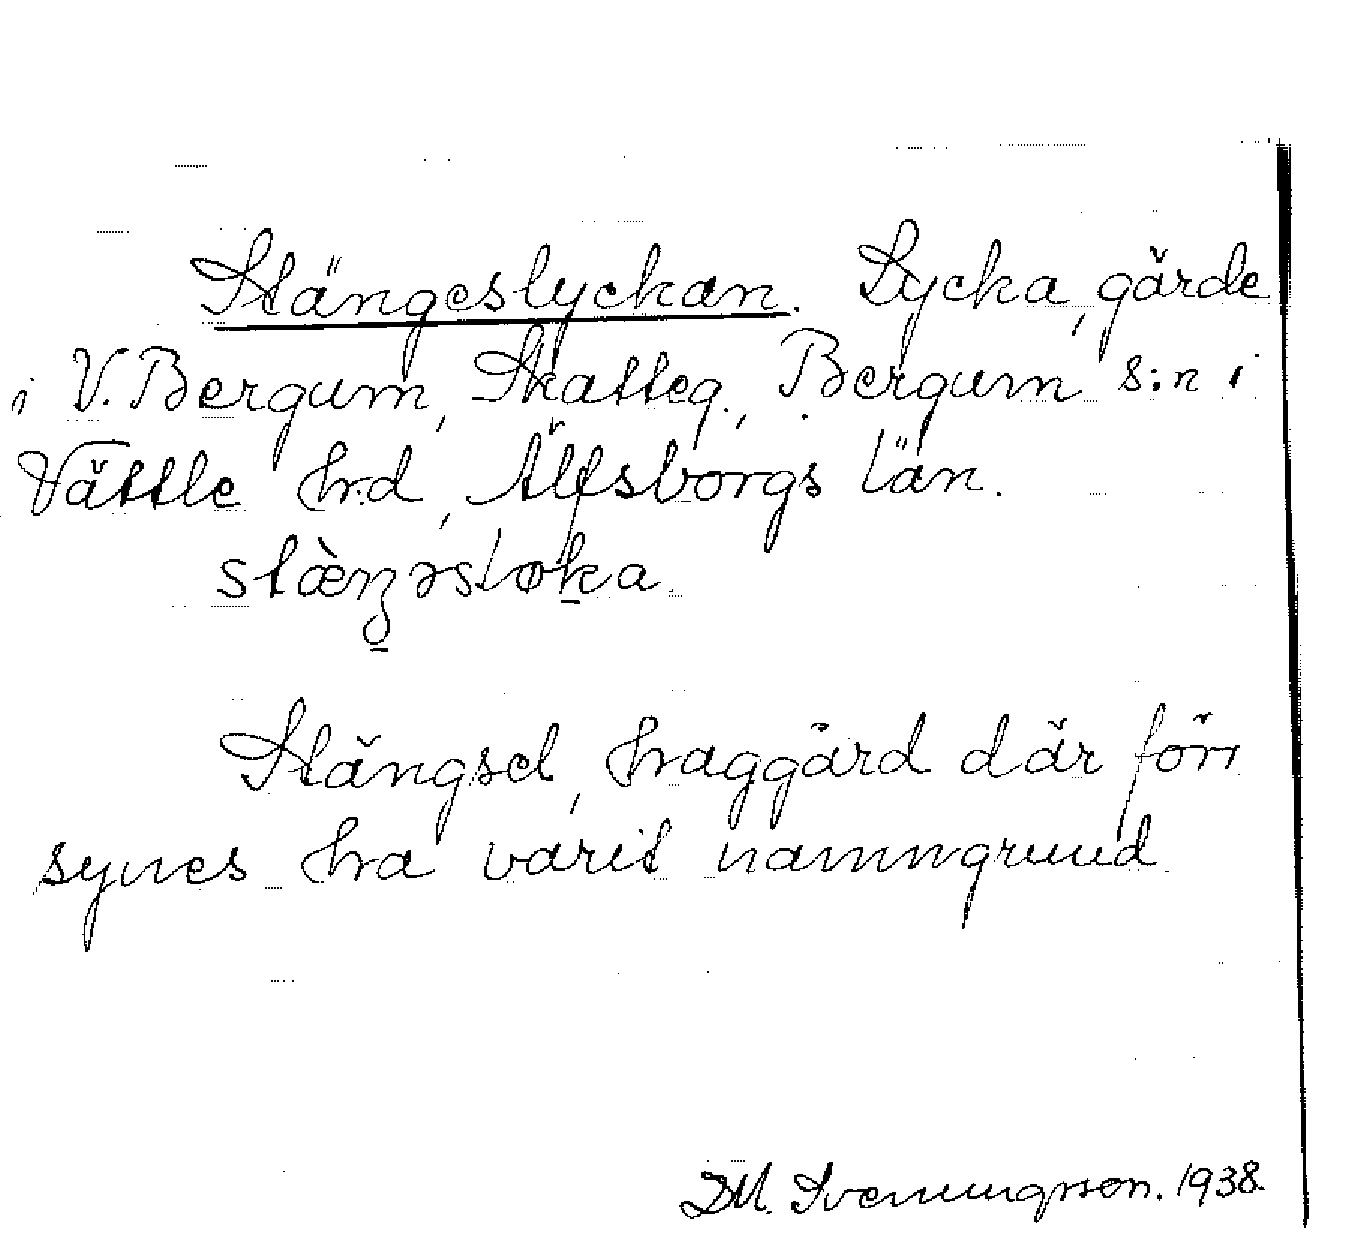 Stängeslyckan. Lycka, gärde
i V. Bergum, Skatteg., Bergum s:n i
Vättle hrd, Älfsborgs län.
stæ̀ŋəsløka
Stängsel, haggård där förr
synes ha varit namngrund
DM. Svenungsson. 1938.